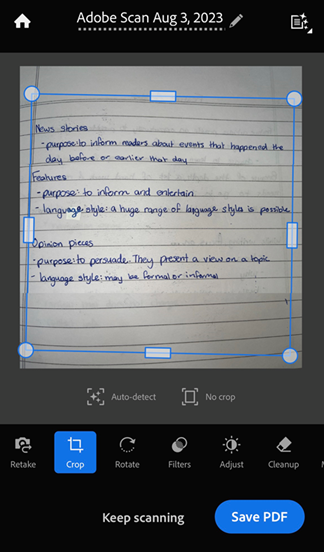 Adobe Scan Aug 3, 2023
News stories
-purpose: to inform readers about events that happened the
day before or earlier that day
Features
-purpose: to inform and entertain
-language style: a huge range of language styles is possible
Opinion pieces
-purpose: to persuade. They present a view on a topic
-language style: may be formal or informal
Auto-detect
No crop
Retake
Crop
Rotate
Filters
Adjust
Cleanup
Keep scanning
Save PDF